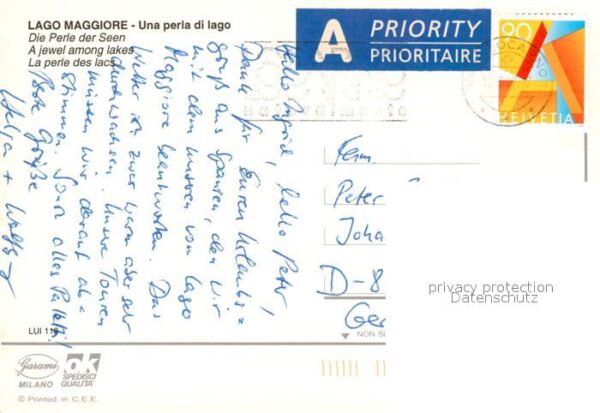 LAGO MAGGIORE - Una perla di lago
Die Perle der Seen
A jewel among lakes
La perle des lacs
A PRIORITY
PRIORITAIRE
90
A
HELVETIA
LOCARNO
Hallo Ingrid, hallo Peter,
Dank für Euren Urlaubs=
gruß aus Spanien, den wir
mit dem unseren vom Lago
Maggiore beantworten. Das
Wetter ist zwar warm aber sehr
durchwachsen. Unsere Touren
müssen wir darauf ab=
stimmen. Sonst alles Paletti!
Beste Grüße
Helga + Wolfg
Fam.
Peter
Joha
D-8
Ger
privacy protection
Datenschutz
LUI 118
NON SC
Garami
MILANO
ok
SPEDISCI
QUALITÀ
© Printed in C.E.E.